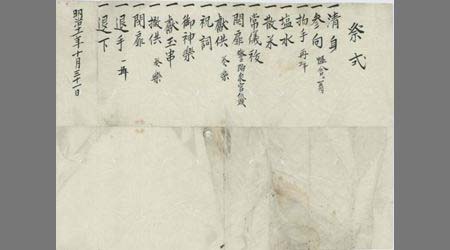 祭式
一清身
一参向
一拍手 再拝
一塩水
一散米
一常儀
一開扉
一献供 奏楽
一祝詞
一御神楽
一献玉串
一撤供 奏楽
一閉扉
一退手 一拝
一退下
明治十一年十月三十一日